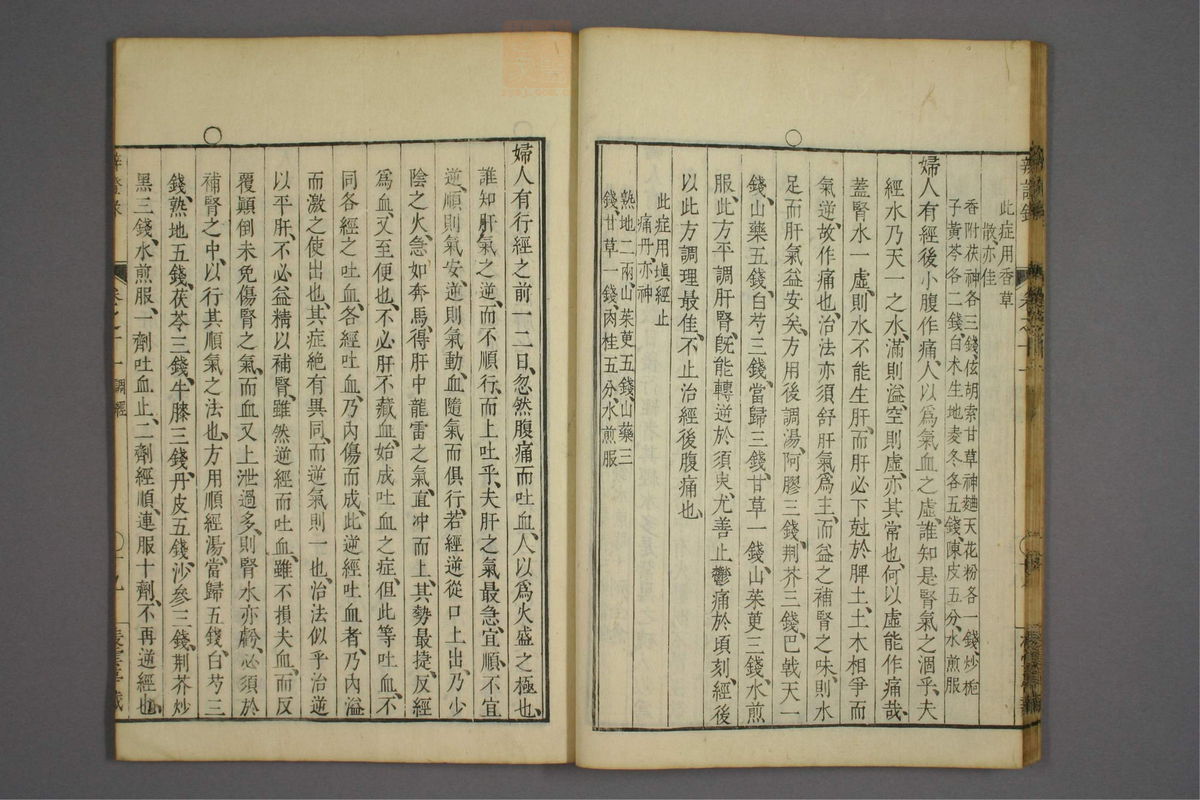 此症用香草
散亦佳
香附茯神各三錢玄胡索甘草神麯天花粉各一錢炒梔
子黃芩各二錢白术生地麦冬各五錢陳皮五分水煎服
婦人有經後小腹作痛人以爲氣血之虛誰知是腎氣之涸乎夫
經水乃天一之水滿則溢空則虛亦其常也何以虛能作痛哉
蓋腎水一虛則水不能生肝而肝必下尅於脾土土木相爭而
氣逆故作痛也治法亦須舒肝氣爲主而益之補腎之味則水
足而肝氣益安矣方用後調湯阿膠三錢荆芥三錢巴戟天一
錢山藥五錢白芍三錢當歸三錢甘草一錢山茱萸三錢水煎
服此方平調肝腎既能轉逆於須臾尤善止鬱痛於頃刻經後
以此方調理最佳不止治經後腹痛也
此症用塡經止
痛丹亦神
熟地二兩山茱萸五錢山藥三
錢甘草一錢肉桂五分水煎服
婦人有行經之前一二日忽然腹痛而吐血人以爲火盛之極也
誰知肝氣之逆而不順行而上吐乎夫肝之氣最急宜順不宜
逆順則氣安逆則氣動血隨氣而俱行若經逆從口上出乃少
陰之火急如奔馬得肝中龍雷之氣直冲而上其勢最捷反經
爲血又至便也不必肝不藏血始成吐血之症但此等吐血不
同各經之吐血各經吐血乃內傷而成此逆經吐血者乃內溢
而激之使出也其症絶有異同而逆氣則一也治法似乎治逆
以平肝不必益精以補腎雖然逆經而吐血雖不損夫血而反
覆顛倒未免傷腎之氣而血又上泄過多則腎水亦虧必須於
補腎之中以行其順氣之法也方用順經湯當歸五錢白芍三
錢熟地五錢茯苓三錢牛膝三錢丹皮五錢沙參三錢荆芥炒
黑三錢水煎服一劑吐血止二劑經順連服十劑不再逆經也
卷之十一 調經
十九